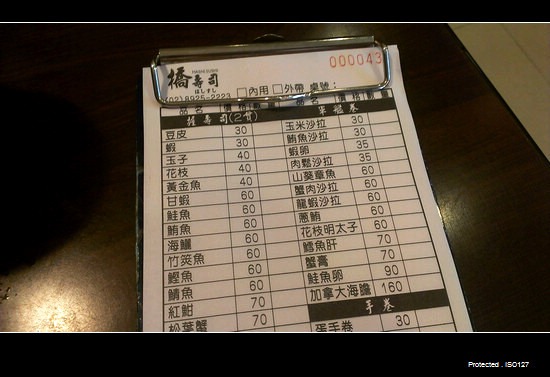 000043
橋 壽司
HASHI SUSHI
はしすし
(02)8925-2223 □內用 □外帶 桌號：
品名 價格 數量 品名 價格 數量
握壽司(2貫) 軍艦卷
豆皮 30 玉米沙拉 30
蝦 30 鮪魚沙拉 30
玉子 40 蝦卵 35
花枝 40 肉鬆沙拉 35
黃金魚 40 山葵章魚 60
甘蝦 60 蟹肉沙拉 60
鮭魚 60 龍蝦沙拉 60
鮪魚 60 蔥鮪 60
海鱺 60 花枝明太子 60
竹筴魚 60 鱈魚肝 70
鰹魚 60 蟹膏 70
鯖魚 60 鮭魚卵 90
紅魽 70 加拿大海膽 160
松葉蟹 70 手卷
蛋手卷 30
Protected . ISO127